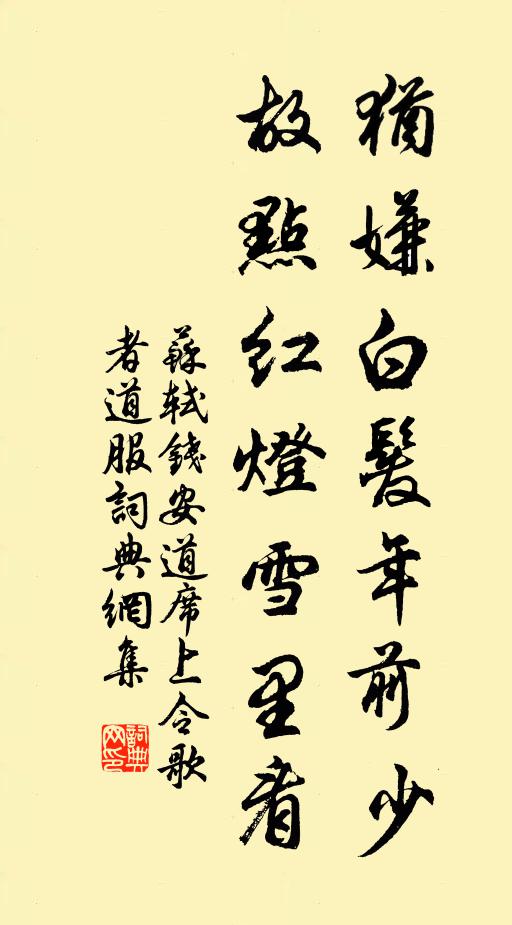 猶嫌白髮年前少
故點紅燈雪里看
蘇軾錢安道席上令歌
者道服詞典網集
詞典網印